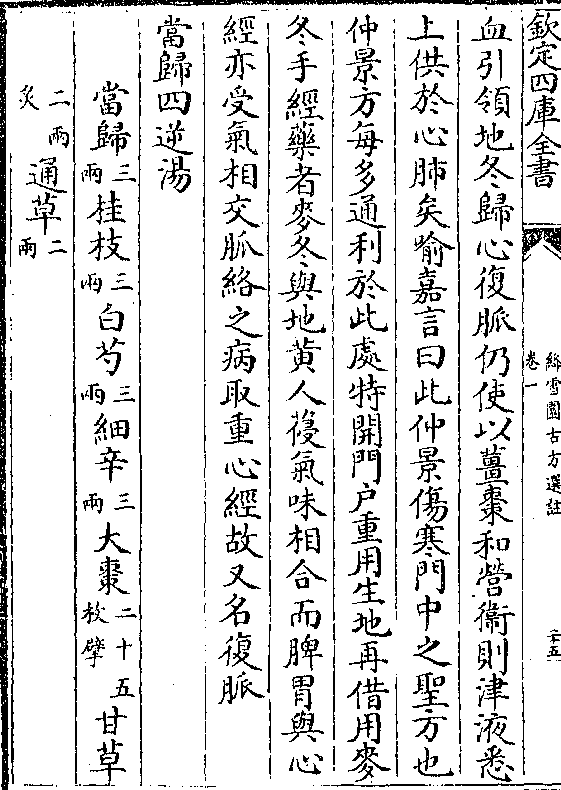 欽定四庫全書
絳雪園古方選註
卷一
二五
血引領地冬歸心復脈仍使以薑棗和營衛則津液悉
上供於心肺矣喻嘉言曰此仲景傷寒門中之聖方也
仲景方每多通利於此處特開門户重用生地再借用麥
冬手經藥者麥冬與地黄人葠氣味相合而脾胃與心
經亦受氣相交脈絡之病取重心經故又名復脈
當歸四逆湯
當歸三兩桂枝三兩白芍三兩細辛三兩大棗二十五枚擘甘草
二兩炙通草二兩